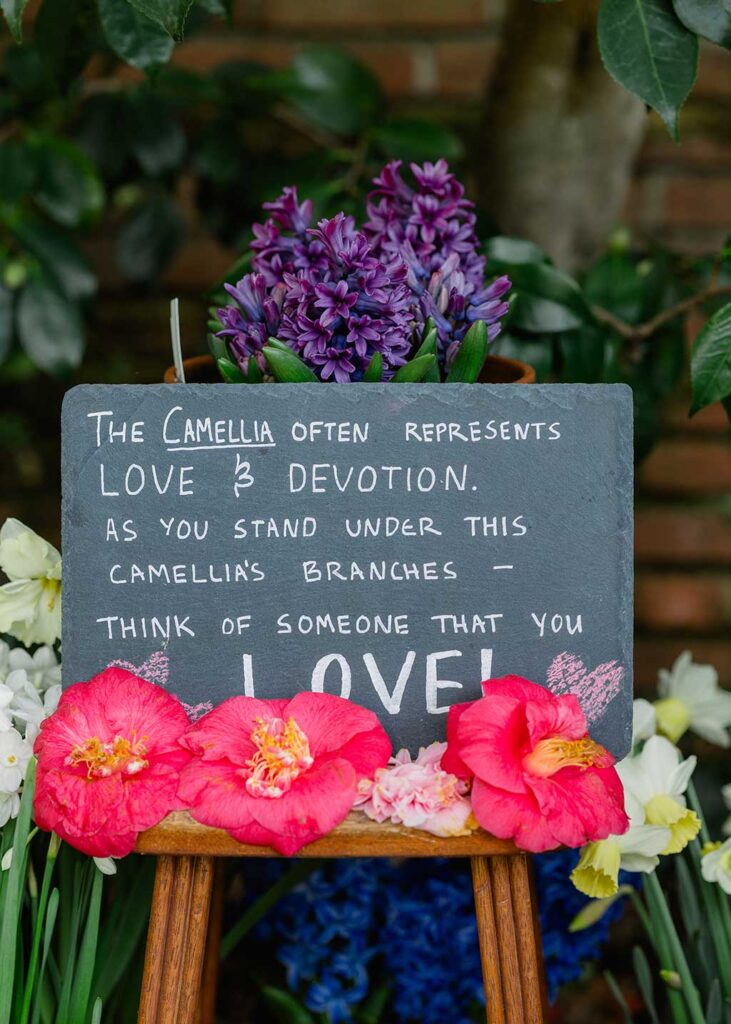 THE CAMELLIA OFTEN REPRESENTS
LOVE & DEVOTION.
AS YOU STAND UNDER THIS
CAMELLIA'S BRANCHES –
THINK OF SOMEONE THAT YOU
LOVE!